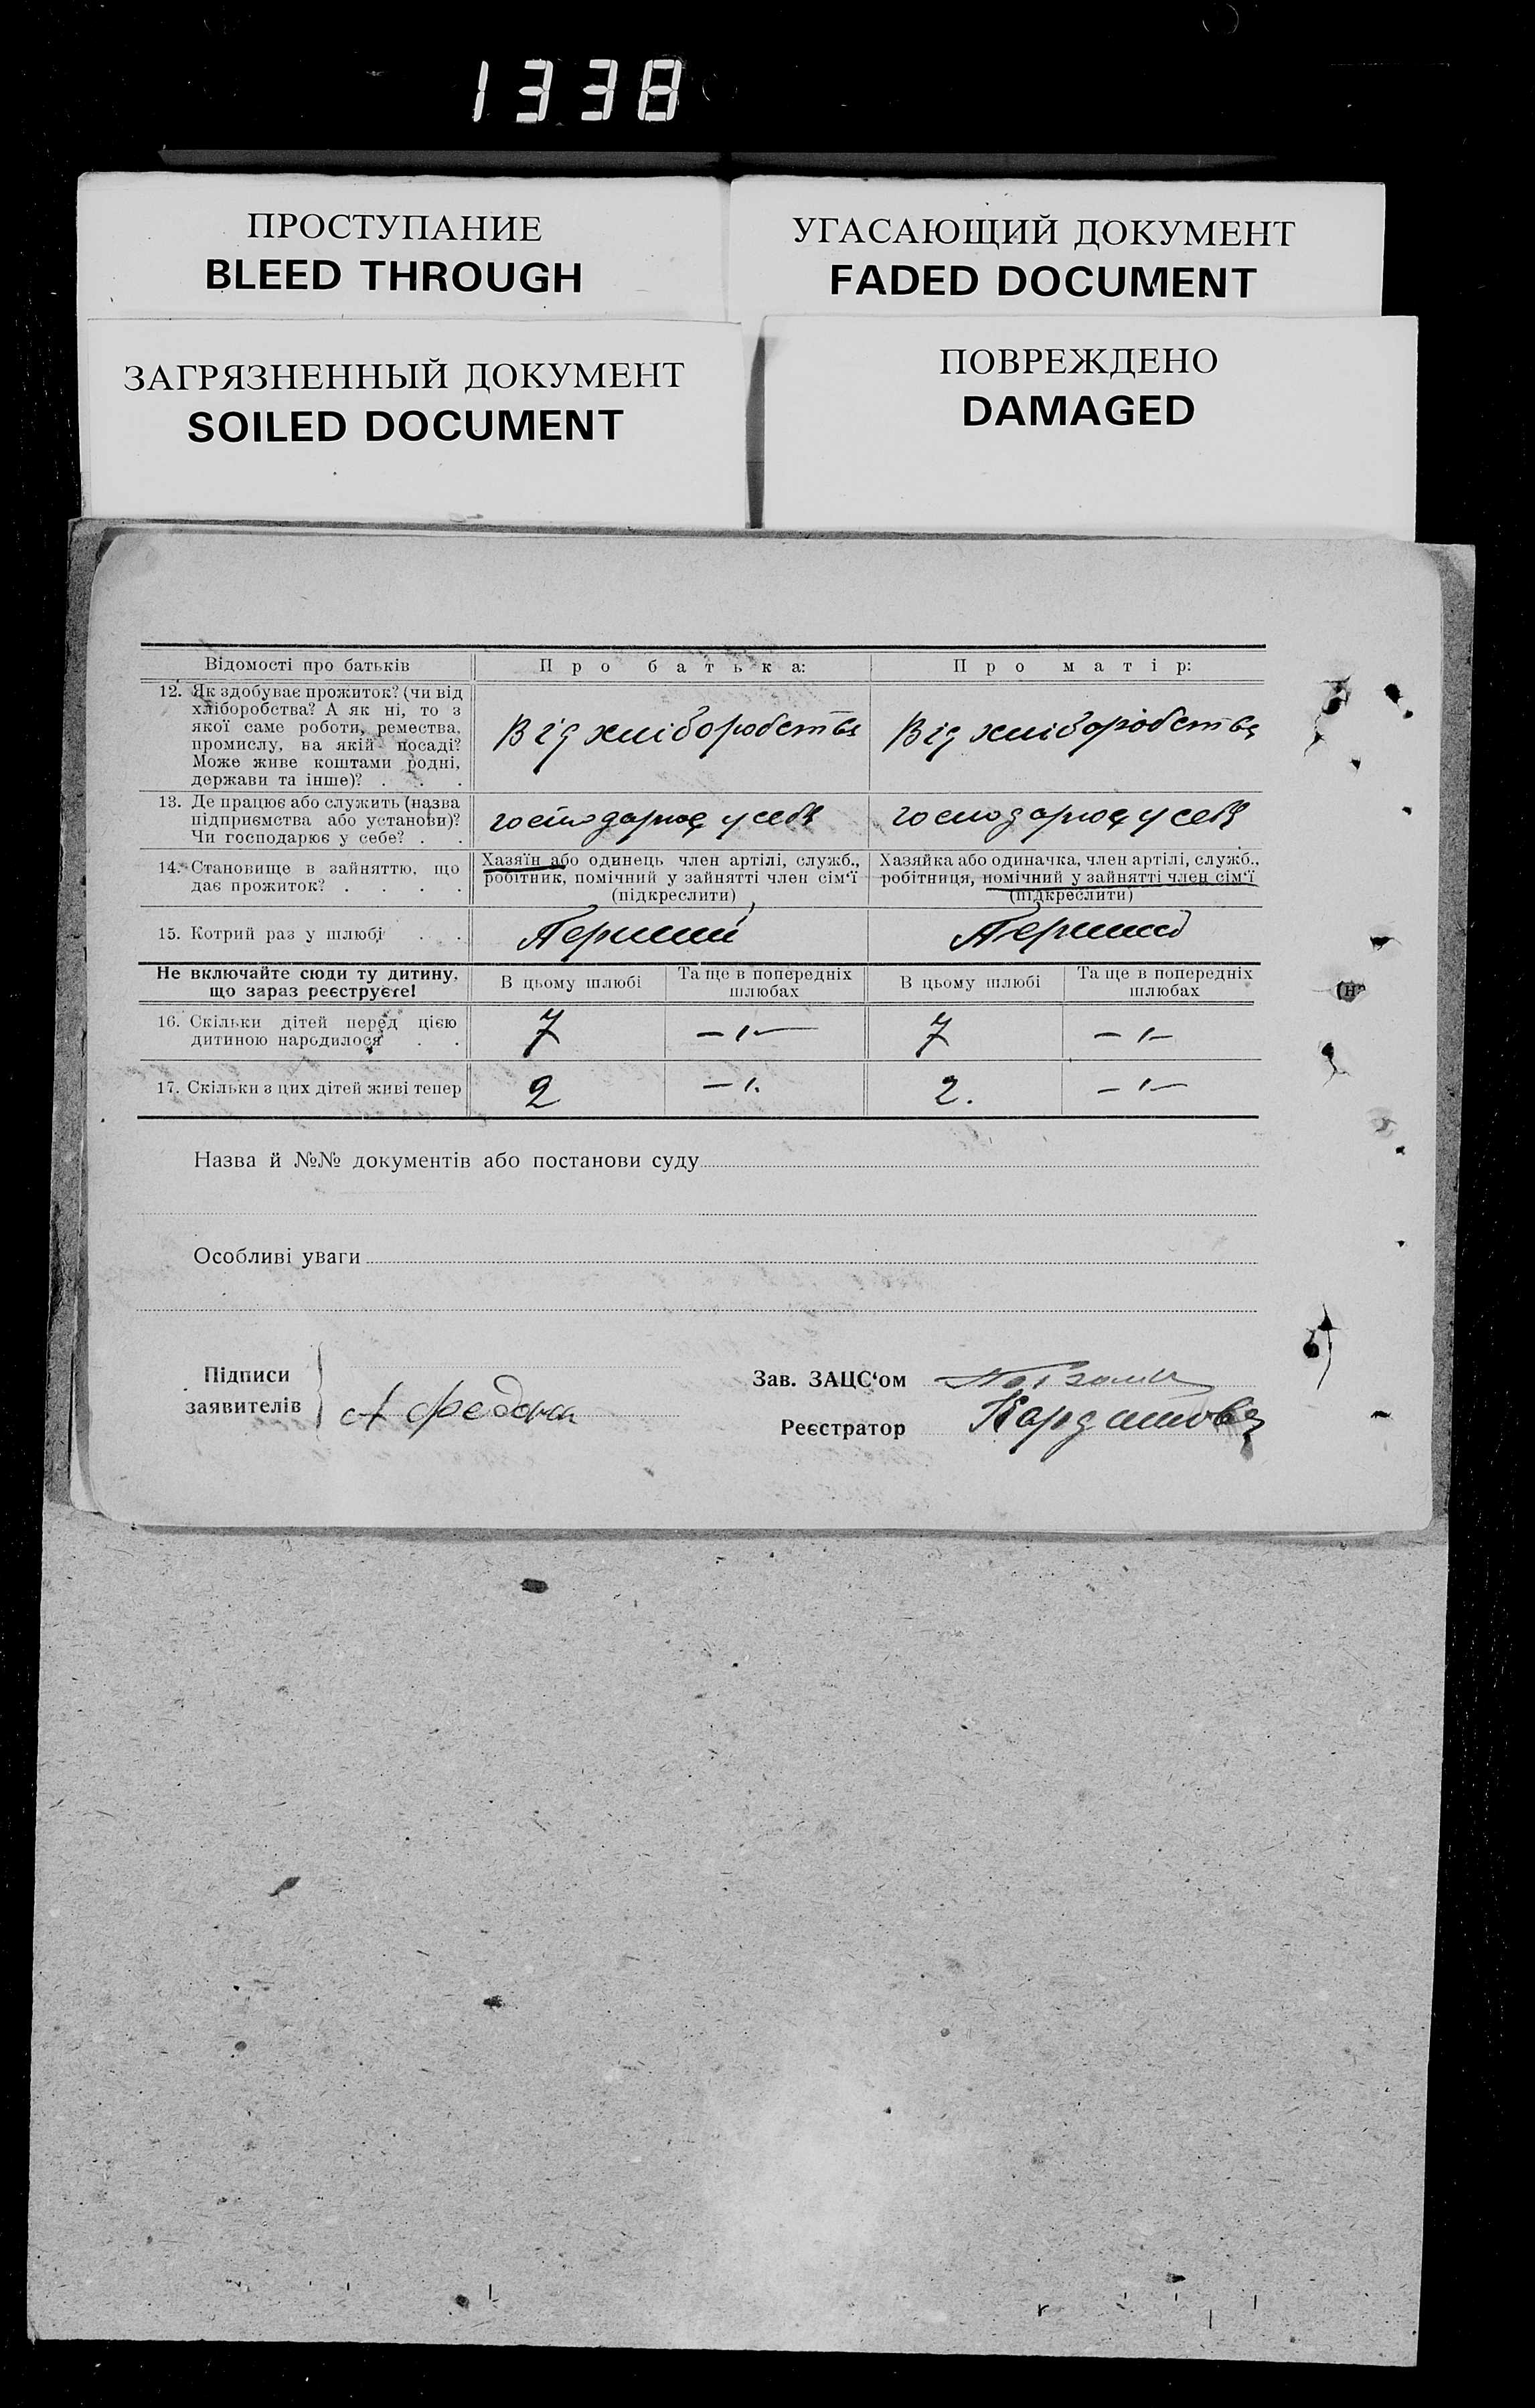 1338
ПРОСТУПАНИЕ
BLEED THROUGH
УГАСАЮЩИЙ ДОКУМЕНТ
FADED DOCUMENT
ЗАГРЯЗНЕННЫЙ ДОКУМЕНТ
SOILED DOCUMENT
ПОВРЕЖДЕНО
DAMAGED
Відомості про батьків
Про батька:
Про матір:
12. Як здобуває прожиток? (чи від
хліборобства? А як ні, то з
якої саме роботи, ремества,
промислу, на якій посаді?
Може живе коштами родні,
держави та інше)? . . .
Від хліборобства
Від хліборобства
13. Де працює або служить (назва
підприємства або установи)?
Чи господарює у себе? . .
господарює у себя
господарює у себя
14. Становище в зайняттю, що
дає прожиток? . . . .
Хазяїн або одинець член артілі, служб.,
робітник, помічний у зайнятті член сім'ї
(підкреслити)
Хазяйка або одиначка, член артілі, служб.,
робітниця, помічний у зайнятті член сім'ї
(підкреслити)
15. Котрий раз у шлюбі . .
Перший
Перший
Не включайте сюди ту дитину,
що зараз реєструєте!
В цьому шлюбі
Та ще в попередніх
шлюбах
В цьому шлюбі
Та ще в попередніх
шлюбах
16. Скільки дітей перед цією
дитиною народилося . .
7
— „ —
7
— „ —
17. Скільки з цих дітей живі тепер
2
— „
2.
— „ —
Назва й №№ документів або постанови суду
Особливі уваги
Підписи
заявителів
Зав. ЗАЦС'ом
Реєстратор